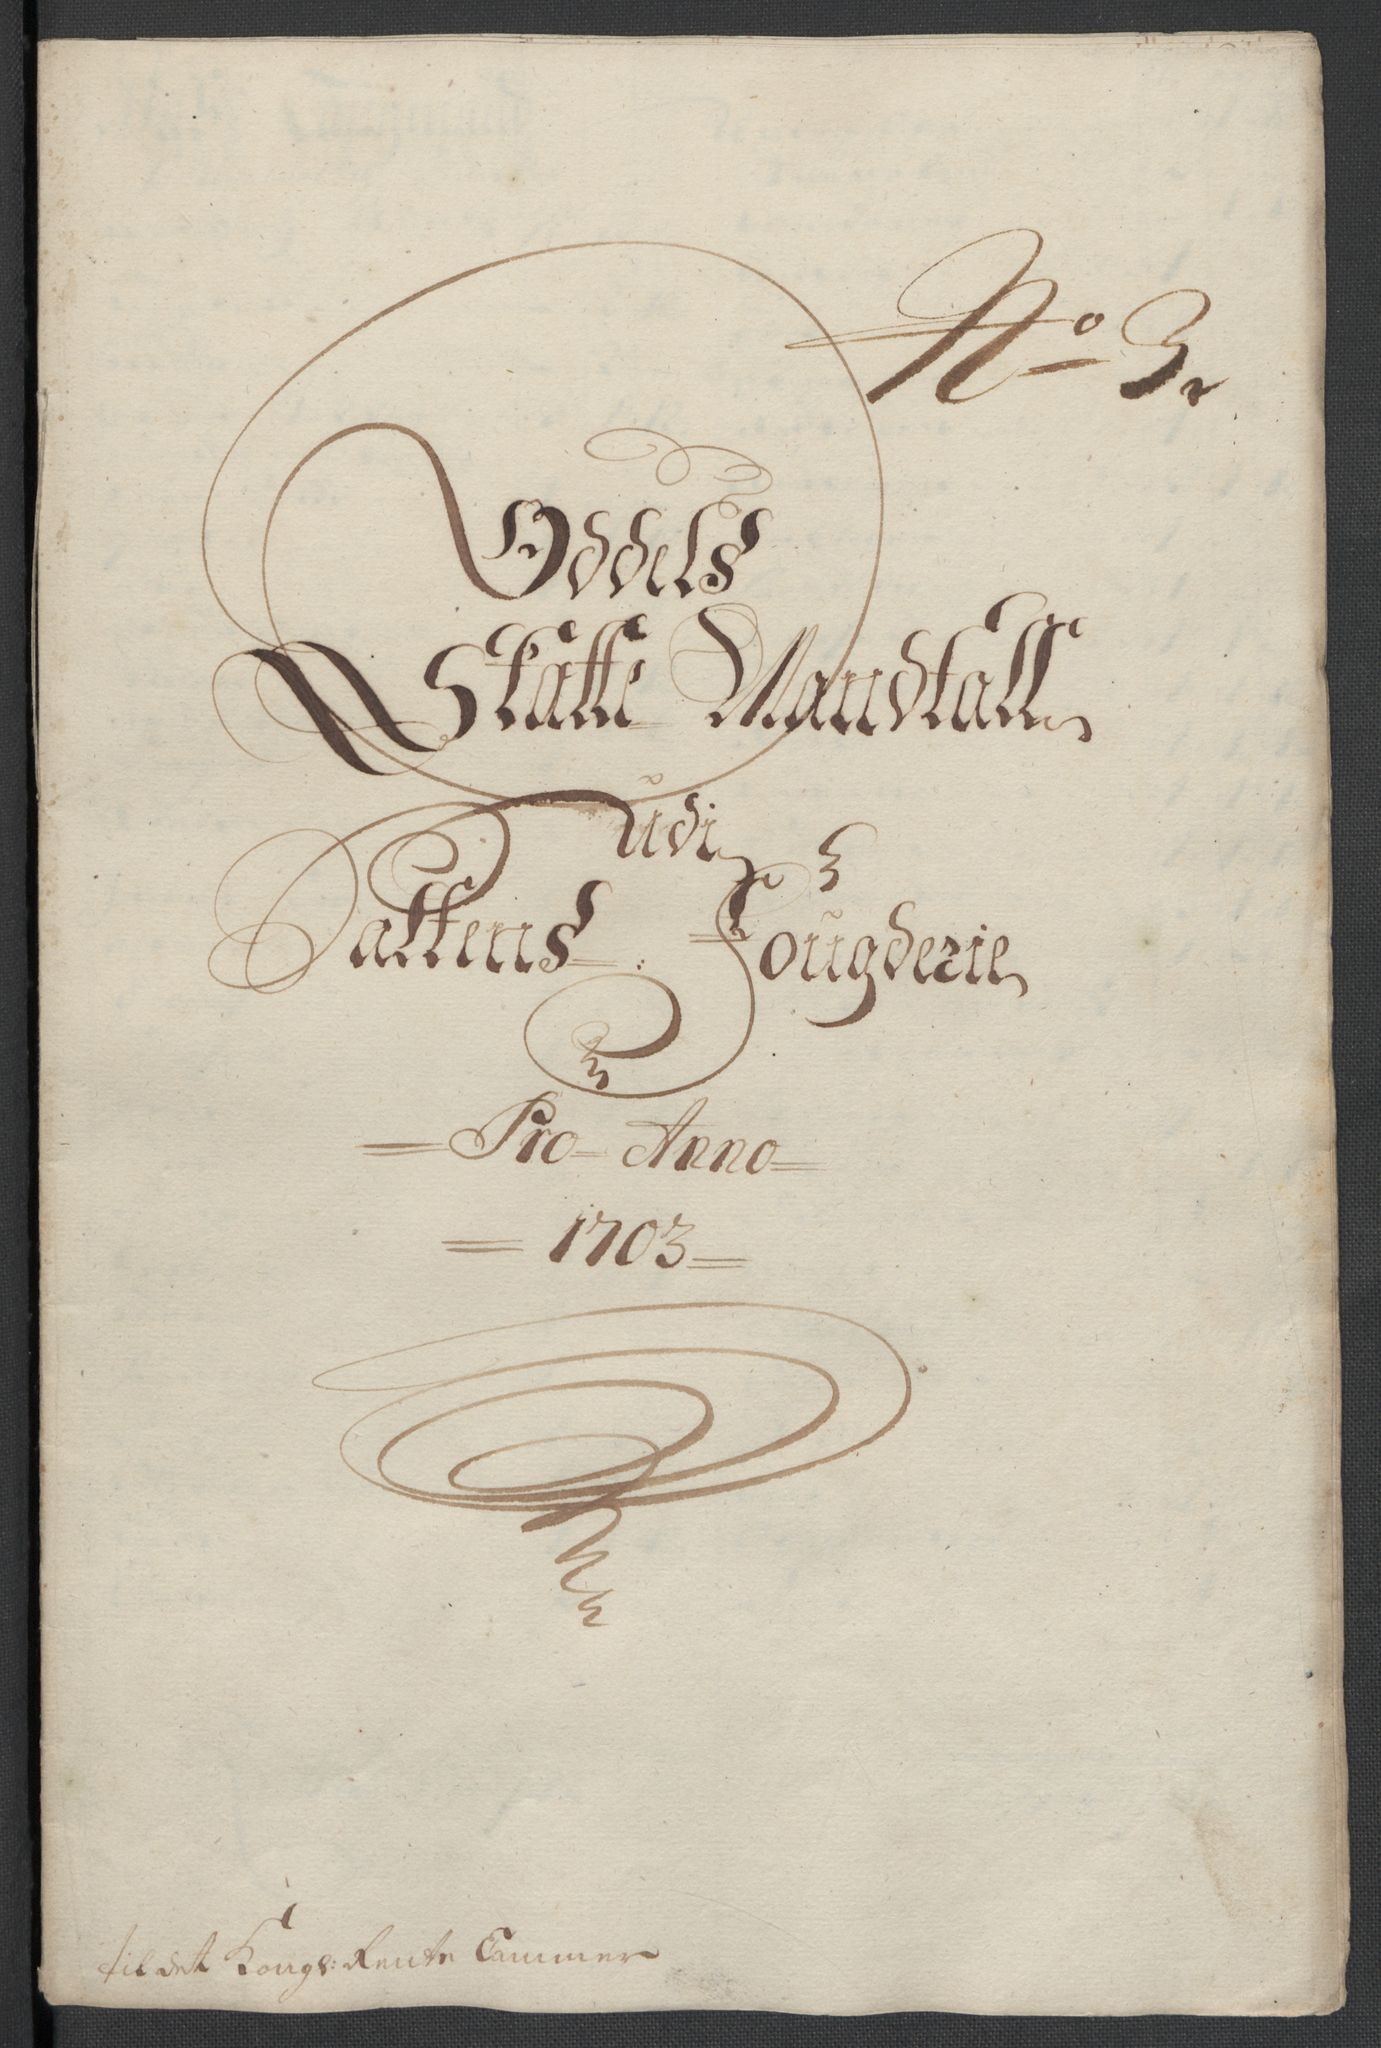 No 3.
Oddels
Skatte Mandtall
udi
Saltens Fougderie
Pro Anno
1703
til det Kongs: Rente Cammer